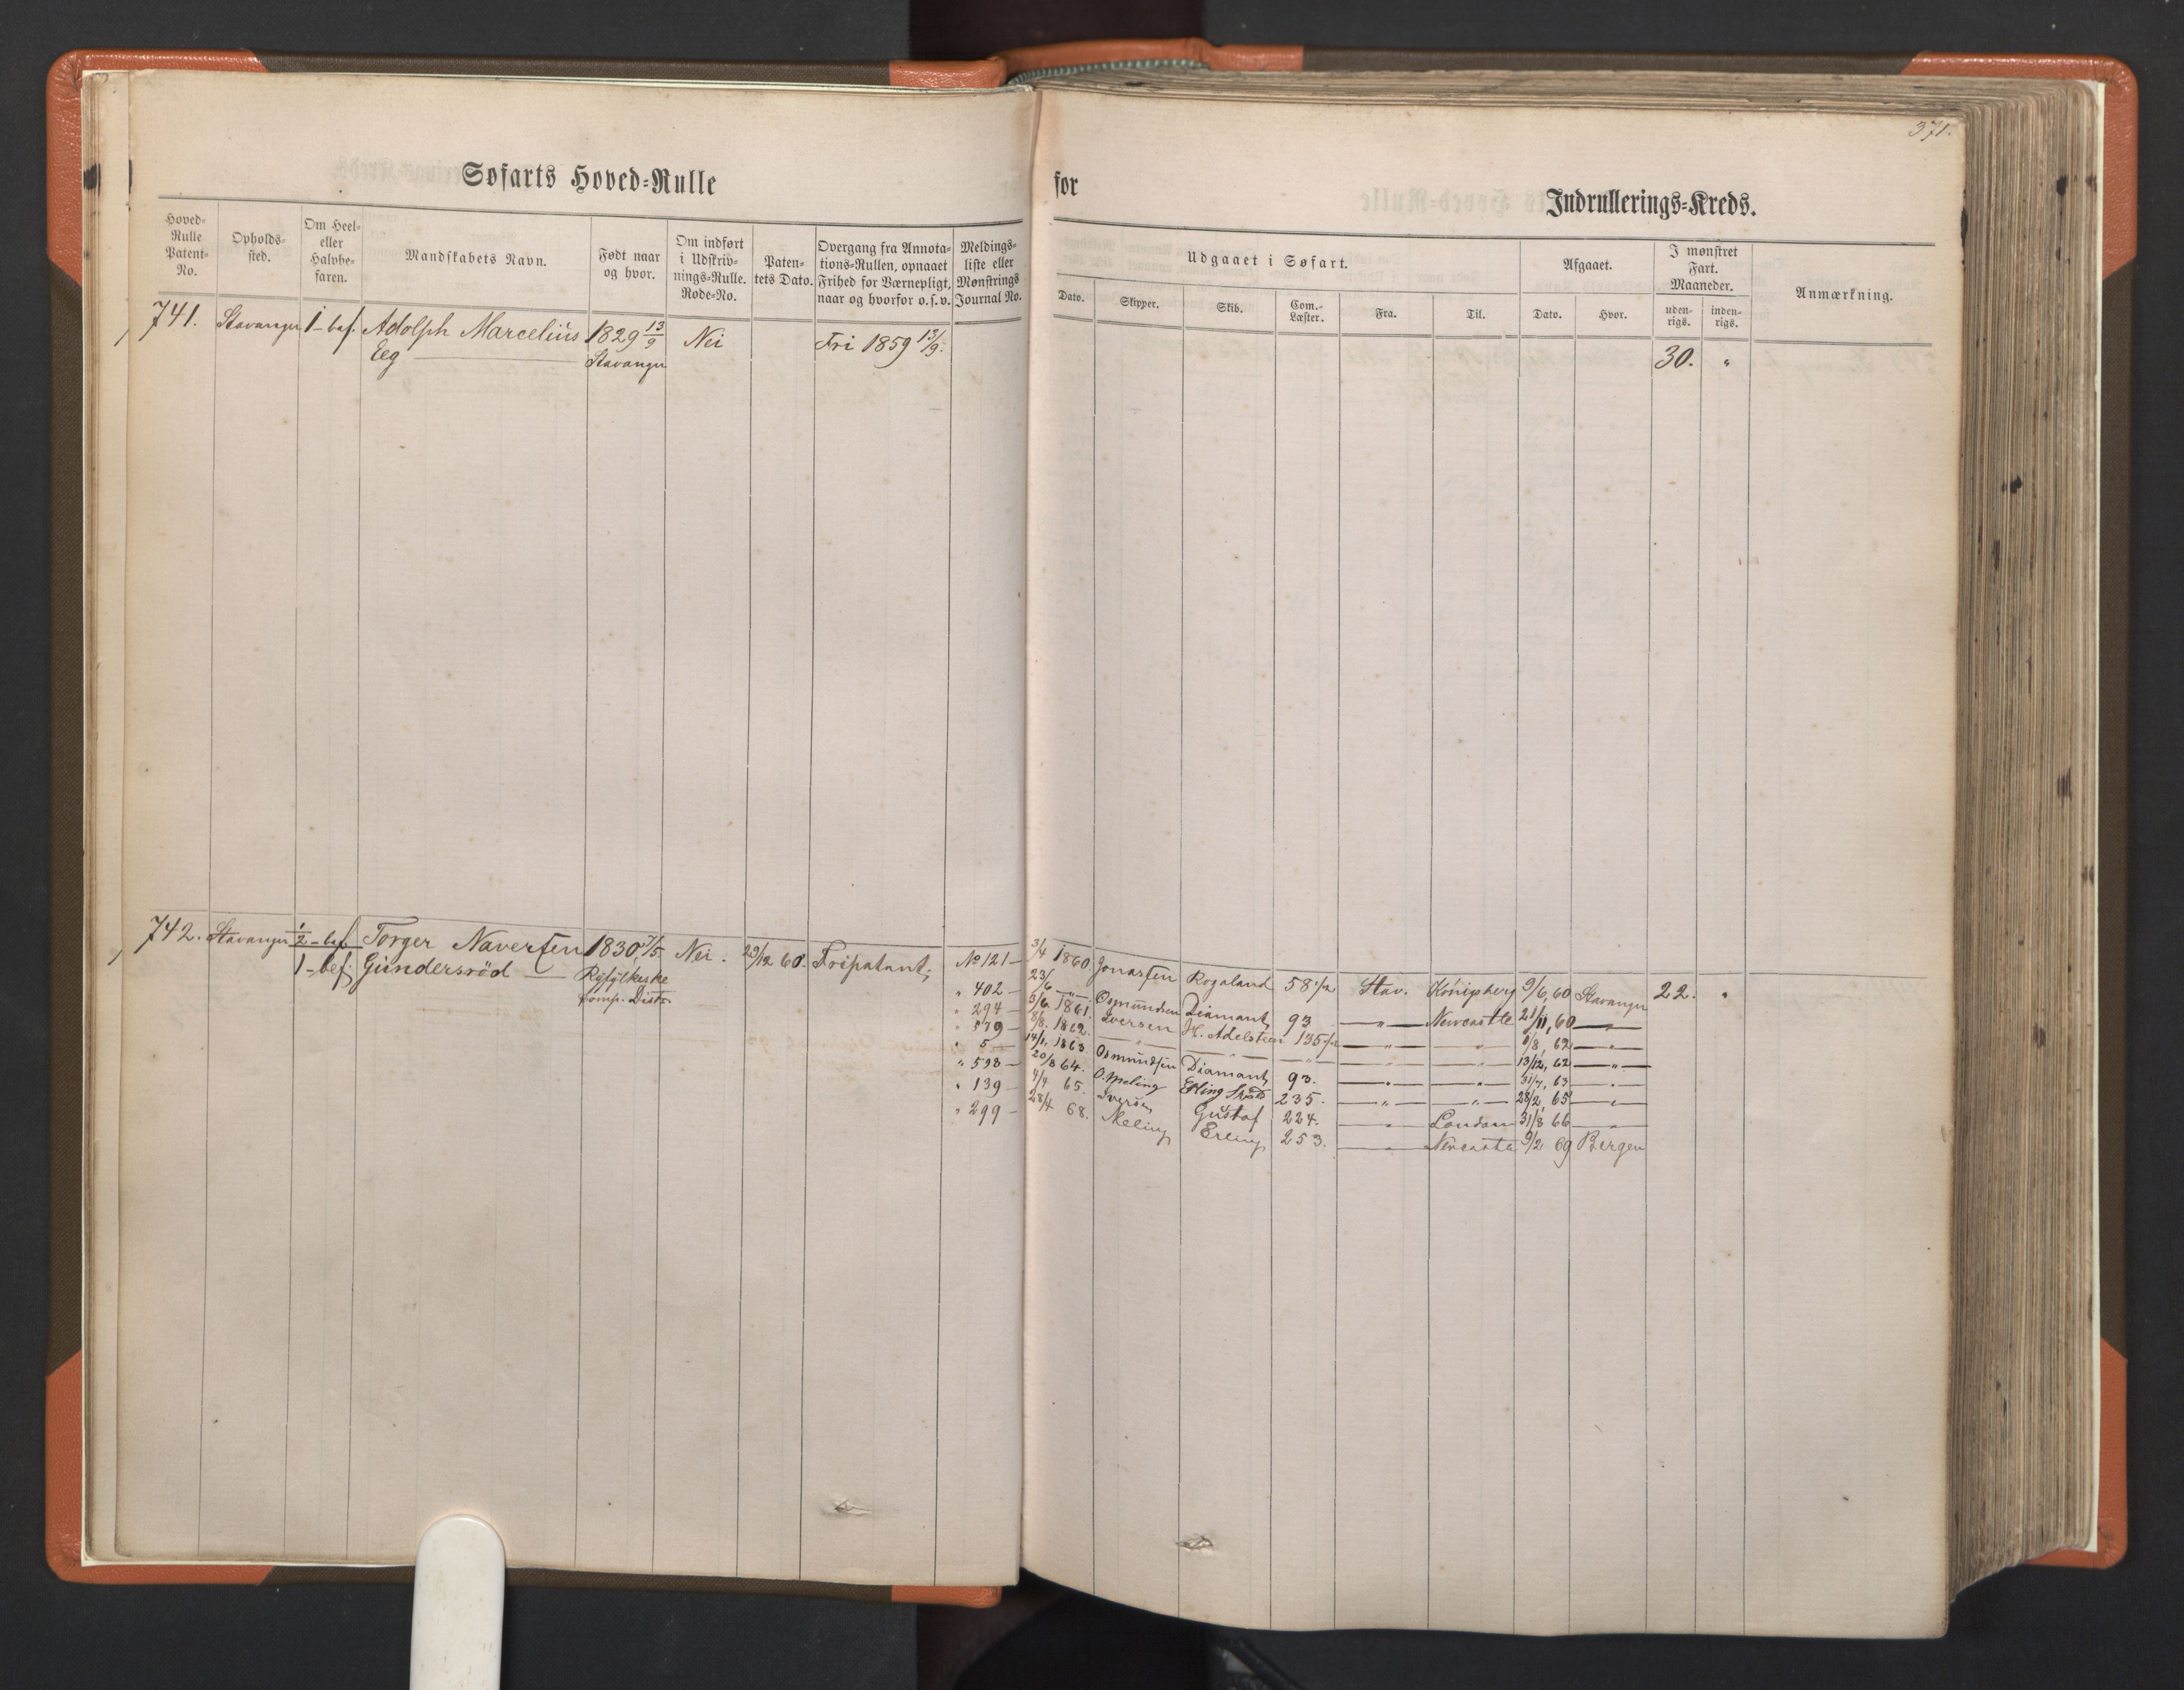 371.
Søfarts Hoved-Rulle for Indrullerings-Kreds.
Hoved-Rulle Patent-No. | Opholds-sted. | Om Heel- eller Halvbe-faren. | Mandskabets Navn. | Født naar og hvor. | Om indført i Udskriv-nings-Rulle. Rode-No. | Paten-tets Dato. | Overgang fra Annota-tions-Rullen, opnaaet Frihed for Værnepligt, naar og hvorfor o.s.v. | Meldings-liste eller Mønstrings Journal No.
Udgaaet i Søfart. | Afgaaet. | I mønstret Fart. Maaneder. | Anmærkning.
Dato. | Skipper. | Skib. | Com.-Læster. | Fra. | Til. | Dato. | Hvor. | uden-rigs. | inden-rigs.
741. Stavanger 1-bef. Adolph Marcelius 1829 13/9 Nei Fri 1859 13/9. 30. "
Eeg — Stavanger
742. Stavanger 1/2-bef. Torger Naversen 1830, 7/5. Nei. 29/12 60. Fripatent;
1-bef. Gundersröd — Ryfylkeske
Comp. Distr.
No 121 — 3/4 1860. Jonassen Rogaland 58 1/2 Stav. Königsberg 9/6, 60 Stavanger 22. "
" 402 — 23/6 — " — Osmundsen Diamant 93 — " — Newcastle 21/11, 60 — " —
" 294 — 3/6 1861. Iversen H. Adelsteen 135 1/2 — " — — " — 1/8, 62 — " —
" 579 — 8/8. 1862. — " — — " — — " — — " — — " — 13/12, 62 — " —
" 5 — 14/1, 1863. Osmundsen Diamant 93. — " — — " — 31/7, 63 — " —
" 598 — 20/8 64. O. Meling Erling 235. — " — — " — 28/2, 65 — " —
" 139 — 4/4 65. Iversen Gustaf 224. — " — London 31/8 66 — " —
" 299 — 28/4 68. Meling Erling 253. — " — Newcastle 9/2 69 Bergen